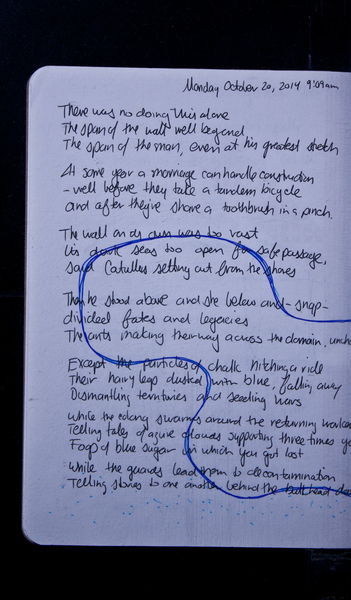 Monday October 20, 2014 9:09am
There was no doing this alone
The span of the wall well beyond
The span of the man, even at his greatest stretch
At some year a marriage can handle construction
- well before they take a tandem bicycle
and after they're share a toothbrush in a pinch.
The wall on its own was too vast
his dark seas too open for safe passage,
said Catullus setting out from the shores
he stood above and she below and - snap -
divided fates and legacies
The ants making their way across the domain,
Except the particles of chalk hitching a ride
Their hairy legs dusted with blue, falling away
Dismantling territories and seeding wars
while the colony swarms around the returning
Telling tales of azure supporting three times
Fog of blue sugar in which you got lost
While the guards lead them to decontamination
Telling stories to one another behind the